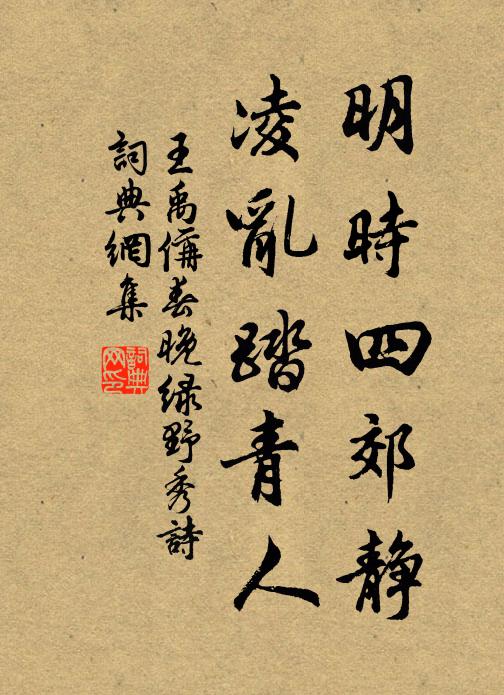 明時四郊靜
凌亂踏青人
王禹偁春晚綠野秀詩
詞典網集
詞典網印